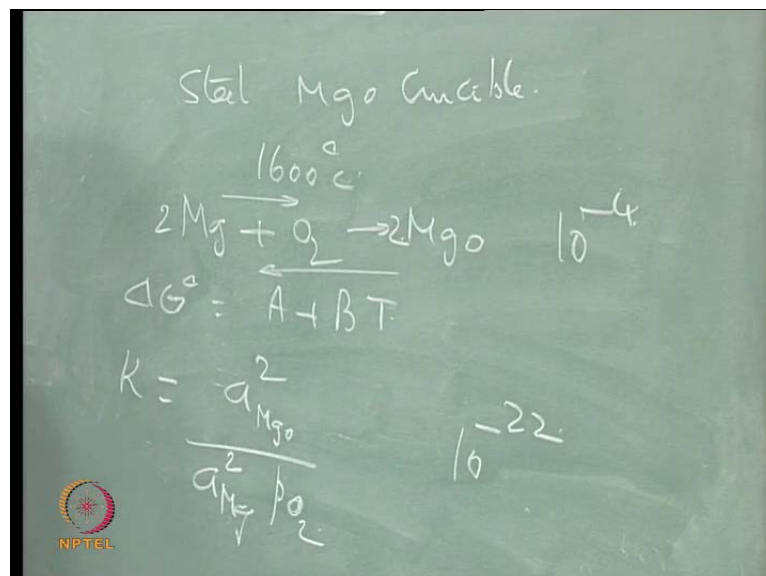 Steel Mgo Crucible.
1600°C
2Mg + O₂ → 2Mgo 10⁻⁴
ΔG° = A + BT
K = a²Mgo / a²Mg pO₂
10⁻²²
NPTEL